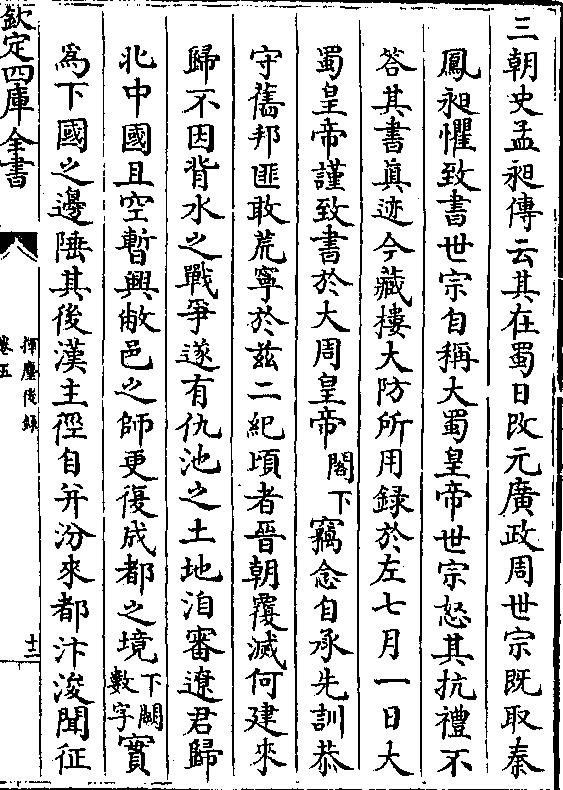 三朝史孟昶傳云其在蜀日改元廣政周世宗既取秦
鳳昶懼致書世宗自稱大蜀皇帝世宗怒其抗禮不
答其書真迹今藏樓大防所用録於左七月一日大
蜀皇帝謹致書於大周皇帝閣下竊念自承先訓恭
守舊邦匪敢荒寧於兹二紀頃者晉朝覆滅何建來
歸不因背水之戰爭遂有仇池之土地洎審遼君歸
北中國且空暫興敝邑之師更復成都之境下闕數字實
爲下國之邊陲其後漢主徑自并汾來都汴浚聞征
欽定四庫全書
揮麈後録
卷五
十三